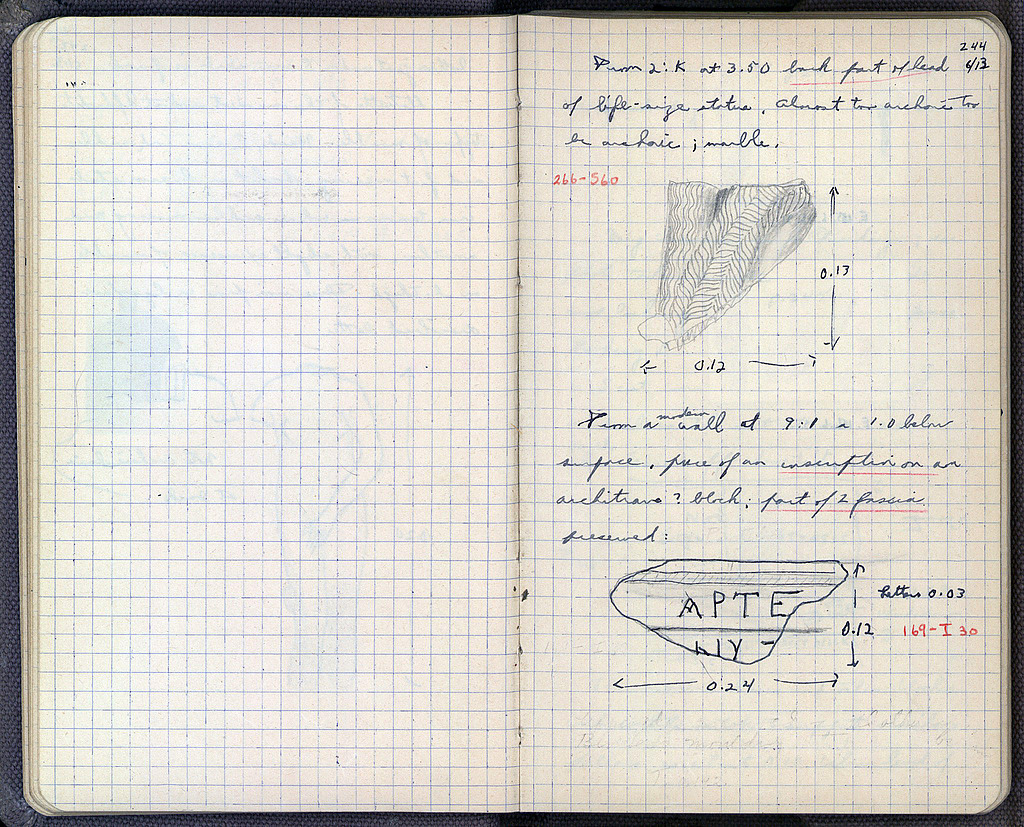 244
6/13
From 2:K at 3.50 back part of head
of life-size statue. Almost too archaic to
be archaic; marble.
266-560
0.13
0.12
modern
From a wall at 9:1 1.0 below
surface, piece of an inscription on an
architrave? block; part of 2 fascia
preserved:
ΑΡΤΕ
ΙΥ
letters 0.03
0.12
169-I 30
0.24